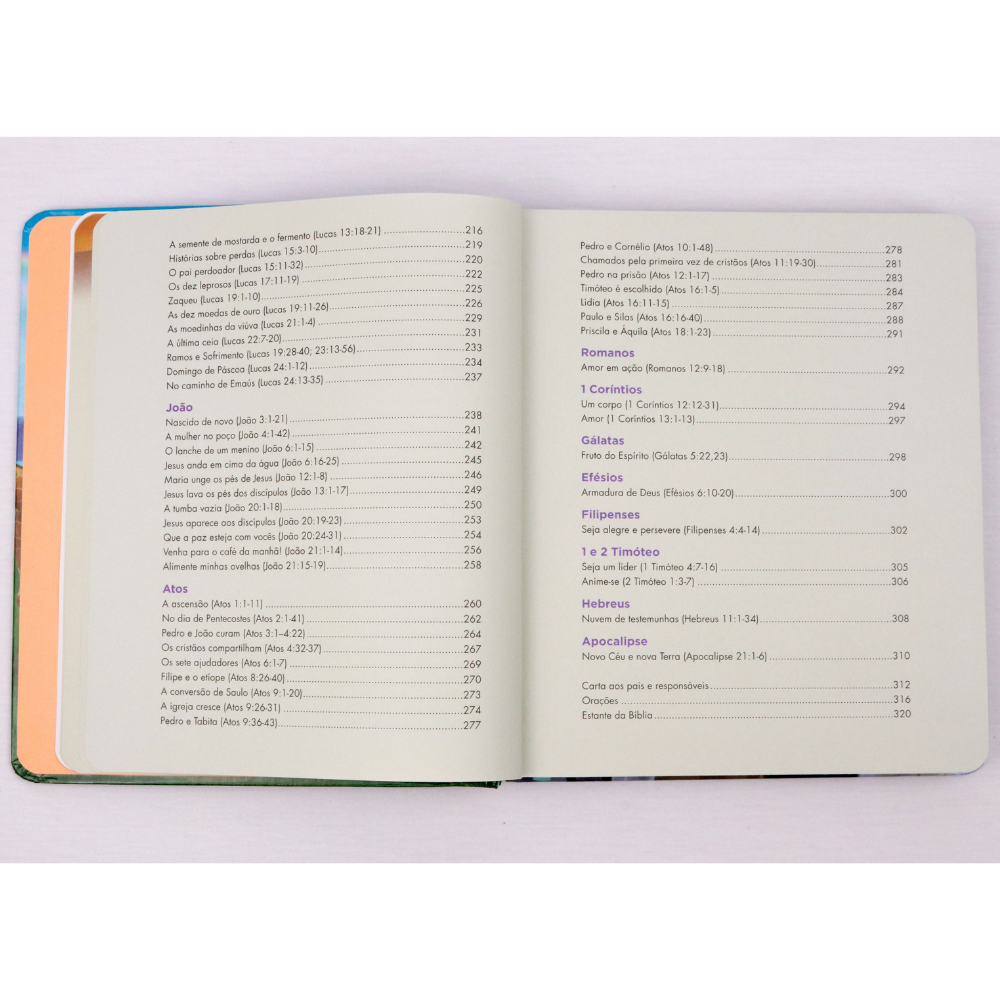 A semente de mostarda e o fermento (Lucas 13:18-21) 216
Histórias sobre perdas (Lucas 15:3-10) 219
O pai perdoador (Lucas 15:11-32) 220
Os dez leprosos (Lucas 17:11-19) 222
Zaqueu (Lucas 19:1-10) 225
As dez moedas de ouro (Lucas 19:11-26) 226
As moedinhas da viúva (Lucas 21:1-4) 229
A última ceia (Lucas 22:7-20) 231
Ramos e Sofrimento (Lucas 19:28-40; 23:13-56) 233
Domingo de Páscoa (Lucas 24:1-12) 234
No caminho de Emaús (Lucas 24:13-35) 237
João
Nascido de novo (João 3:1-21) 238
A mulher no poço (João 4:1-42) 241
O lanche de um menino (João 6:1-15) 242
Jesus anda em cima da água (João 6:16-25) 245
Maria unge os pés de Jesus (João 12:1-8) 246
Jesus lava os pés dos discípulos (João 13:1-17) 249
A tumba vazia (João 20:1-18) 250
Jesus aparece aos discípulos (João 20:19-23) 253
Que a paz esteja com vocês (João 20:24-31) 254
Venha para o café da manhã! (João 21:1-14) 256
Alimente minhas ovelhas (João 21:15-19) 258
Atos
A ascensão (Atos 1:1-11) 260
No dia de Pentecostes (Atos 2:1-41) 262
Pedro e João curam (Atos 3:1–4:22) 264
Os cristãos compartilham (Atos 4:32-37) 267
Os sete ajudadores (Atos 6:1-7) 269
Filipe e o etíope (Atos 8:26-40) 270
A conversão de Saulo (Atos 9:1-20) 273
A igreja cresce (Atos 9:26-31) 274
Pedro e Tabita (Atos 9:36-43) 277
Pedro e Cornélio (Atos 10:1-48) 278
Chamados pela primeira vez de cristãos (Atos 11:19-30) 281
Pedro na prisão (Atos 12:1-17) 283
Timóteo é escolhido (Atos 16:1-5) 284
Lídia (Atos 16:11-15) 287
Paulo e Silas (Atos 16:16-40) 288
Priscila e Áquila (Atos 18:1-23) 291
Romanos
Amor em ação (Romanos 12:9-18) 292
1 Coríntios
Um corpo (1 Coríntios 12:12-31) 294
Amor (1 Coríntios 13:1-13) 297
Gálatas
Fruto do Espírito (Gálatas 5:22,23) 298
Efésios
Armadura de Deus (Efésios 6:10-20) 300
Filipenses
Seja alegre e persevere (Filipenses 4:4-14) 302
1 e 2 Timóteo
Seja um líder (1 Timóteo 4:7-16) 305
Anime-se (2 Timóteo 1:3-7) 306
Hebreus
Nuvem de testemunhas (Hebreus 11:1-34) 308
Apocalipse
Novo Céu e nova Terra (Apocalipse 21:1-6) 310
Carta aos pais e responsáveis 312
Orações 316
Estante da Bíblia 320